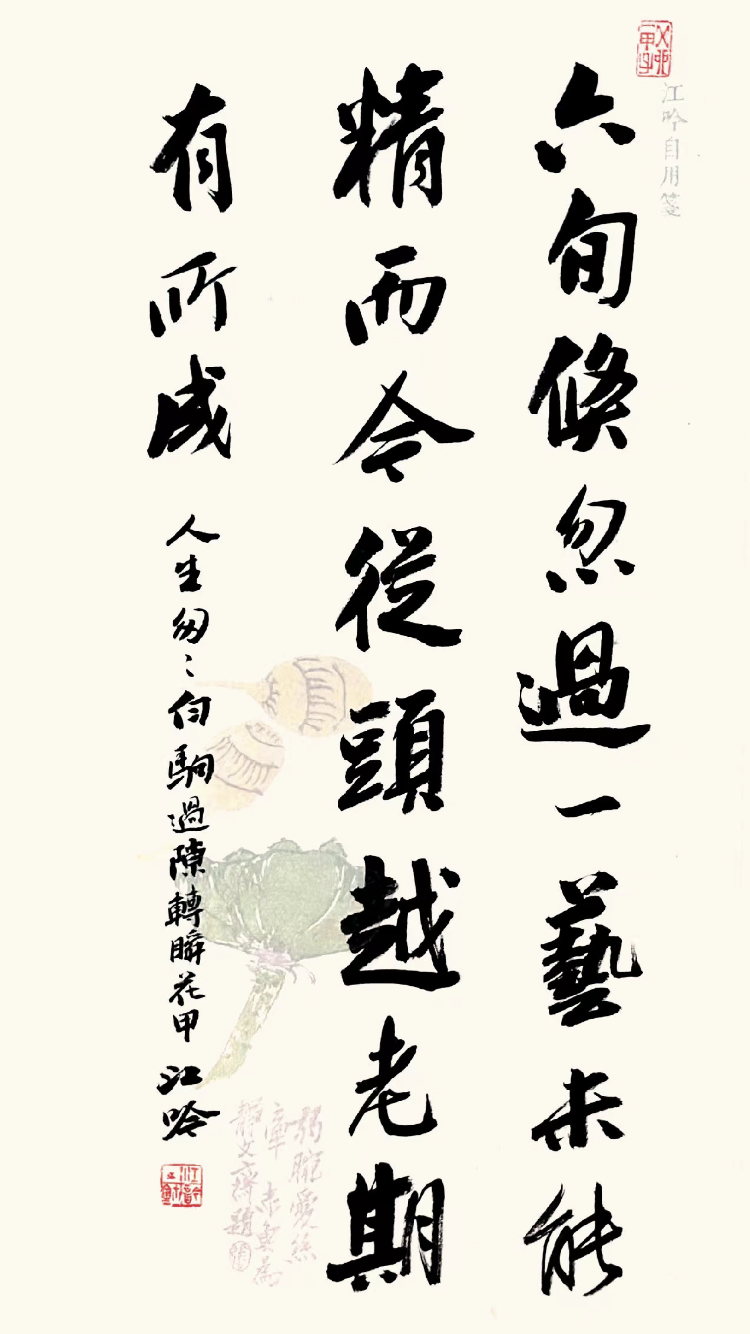 江吟自用箋
六旬倏忽過一藝未能
精而今從頭越老期
有所成
人生匆〻白駒過隙轉瞬花甲
江吟